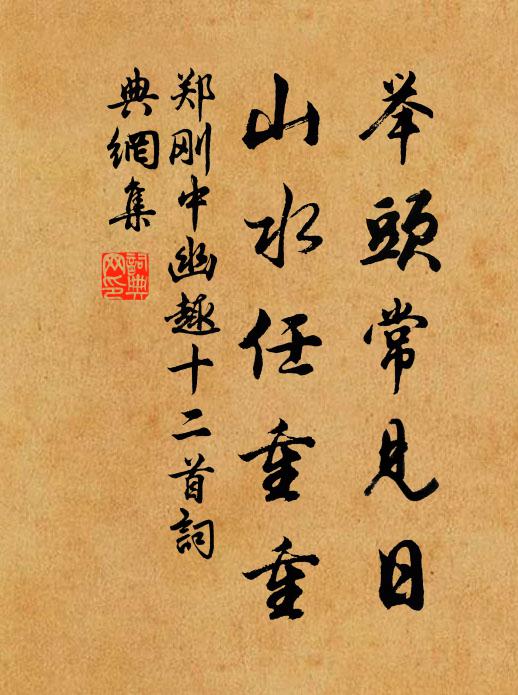 举頭常見日
山水任重重
郑刚中幽趣十二首詞
典網集
詞典網印